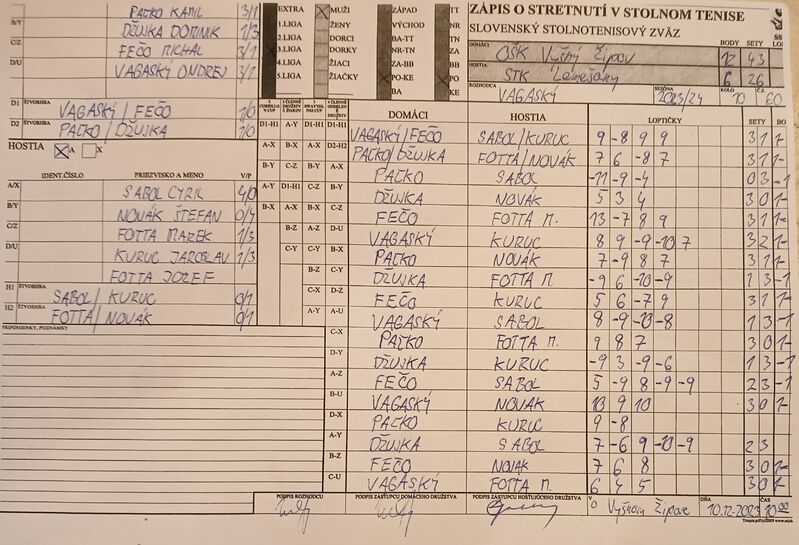 PAĽKO KAMIL 3/1
B/Y DŽUJKA DOMINIK 1/3
C/Z FEČO MICHAL 3/1
D/U VAGASKÝ ONDREJ 3/1
D1 ŠTVORHRA VAGASKÝ/FEČO 1/0
D2 ŠTVORHRA PAĽKO/DŽUJKA 1/0
HOSTIA A X
IDENT.ČÍSLO PRIEZVISKO A MENO V/P
A/X SABOL CYRIL 4/0
B/Y NOVÁK ŠTEFAN 0/4
C/Z FOTTA MAREK 1/3
D/U KURUC JAROSLAV 1/3
FOTTA JOZEF
H1 ŠTVORHRA SABOL/KURUC 0/1
H2 ŠTVORHRA FOTTA/NOVÁK 0/1
PRIPOMIENKY, POZNÁMKY
EXTRA MUŽI ZÁPAD TT
1.LIGA ŽENY VÝCHOD NR
2.LIGA DORCI BA-TT TN
3.LIGA DORKY NR-TN ZA
4.LIGA ŽIACI ZA-BB BB
5.LIGA ŽIAČKY PO-KE PO
BA KE
ZÁPIS O STRETNUTÍ V STOLNOM TENISE
SLOVENSKÝ STOLNOTENISOVÝ ZVÄZ
DOMÁCI OŠK Vyšný Žipov BODY 12 SETY 43
HOSTIA STK Lemešany 6 26
ROZHODCA VAGASKÝ SEZÓNA 2023/24 KOLO 10 Č. 60
DOMÁCI HOSTIA LOPTIČKY SETY BO
D1-H1 A-Y D1-H1 D1-H1 VAGASKÝ/FEČO SABOL/KURUC 9 -8 9 9 3 1 1-
A-X B-X A-X D2-H2 PAĽKO/DŽUJKA FOTTA/NOVÁK 7 6 -8 7 3 1 1-
B-Y C-Z B-Y A-X PAĽKO SABOL -11 -9 -4 0 3 -1
A-Y D1-H1 C-Z B-Y DŽUJKA NOVÁK 5 3 4 3 0 1-
B-X A-X B-X C-Z FEČO FOTTA M. 13 -7 8 9 3 1 1-
B-Z A-Z D-U VAGASKÝ KURUC 8 9 -9 -10 7 3 2 1-
C-Y C-Y B-X PAĽKO NOVÁK 7 -9 8 7 3 1 1-
B-Z C-Y DŽUJKA FOTTA M. -9 6 -10 -9 1 3 -1
C-X D-Z FEČO KURUC 5 6 -7 9 3 1 1-
A-Y A-U VAGASKÝ SABOL 8 -9 -13 -8 1 3 -1
C-X PAĽKO FOTTA M. 9 8 7 3 0 1-
D-Y DŽUJKA KURUC -9 3 -9 -6 1 3 -1
A-Z FEČO SABOL 5 -9 8 -9 -9 2 3 -1
B-U VAGASKÝ NOVÁK 13 9 10 3 0 1-
D-X PAĽKO KURUC 9 -8
A-Y DŽUJKA SABOL 7 -6 9 -10 -9 2 3
B-Z FEČO NOVAK 7 6 8 3 0 1-
C-U VAGASKÝ FOTTA M. 6 4 5 3 0 1-
PODPIS ROZHODCU PODPIS ZÁSTUPCU DOMÁCEHO DRUŽSTVA PODPIS ZÁSTUPCU HOSŤUJÚCEHO DRUŽSTVA Vyšnom Žipove DŇA 10.12.2023 ČAS 10:00